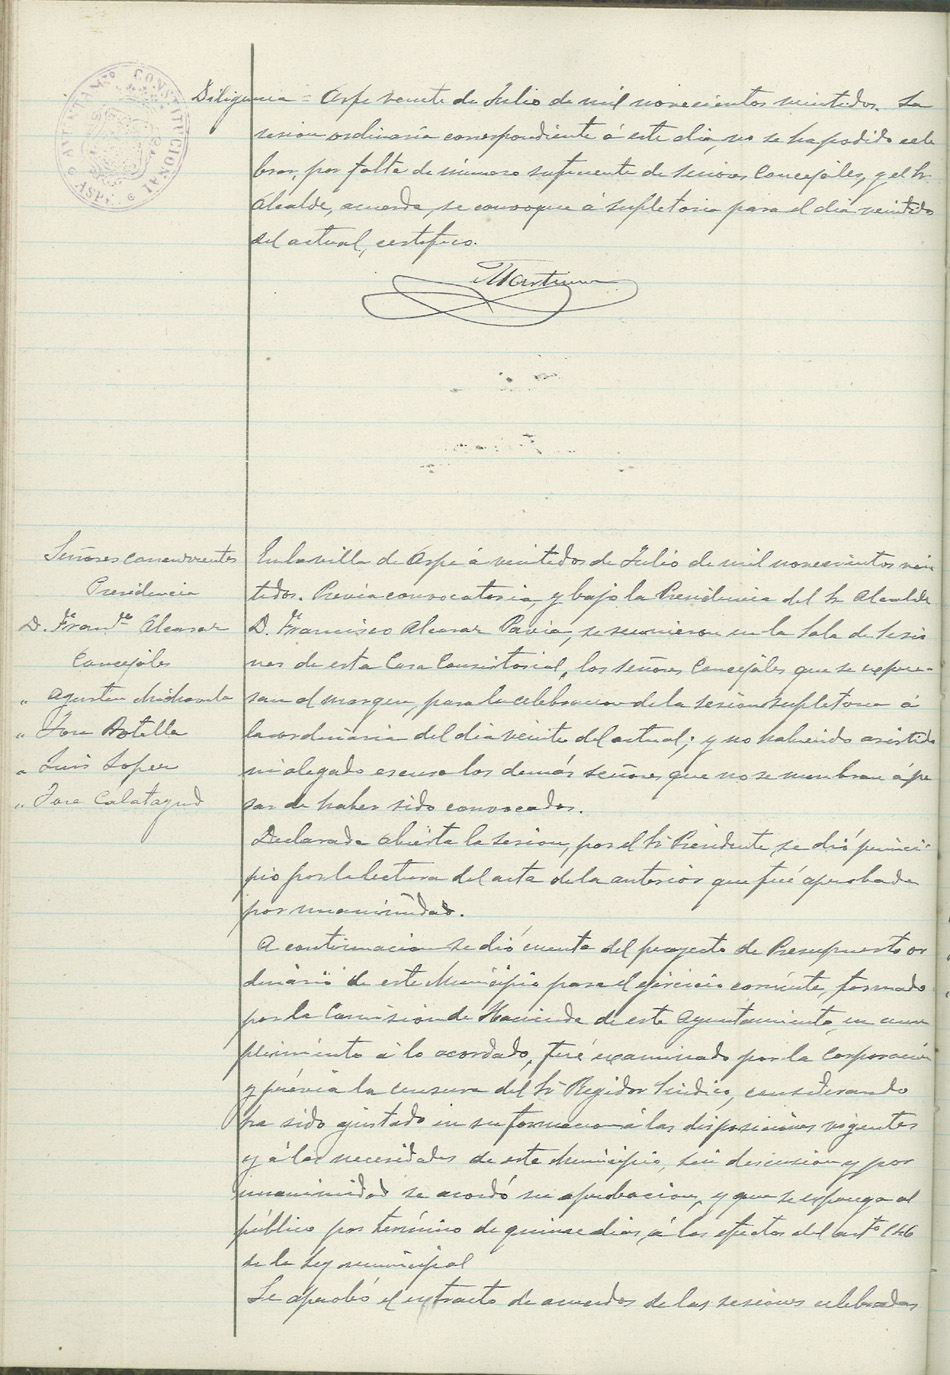 AYUNTAMTO CONSTITUCIONAL
ASPE
Diligencia = Aspe veinte de Julio de mil novecientos veintidos. La
sesion ordinaria correspondiente á este dia, no se ha podido cele
brar, por falta de número suficiente de señores Concejales, y el Sr
Alcalde, acuerda, se convoque á supletoria para el dia veintidos
del actual, certifico.
Martinez
Señores concurrentes
Presidencia
D. Franco Alcaraz
Concejales
" Agustin
" Jose Botella
" Luis Lopez
" Jose Calatayud
En la villa de Aspe á veintidos de Julio de mil novecientos vein
tidos. Previa convocatoria, y bajo la Presidencia del Sr Alcalde
D. Francisco Alcaraz Pavia, se reunieron en la Sala de Sesio
nes de esta Casa Consistorial, los señores Concejales que se expre-
san al margen, para la celebracion de la sesion supletoria á
la ordinaria del dia veinte del actual; y no habiendo asistido
ni alegado escusa los demás señores que no se nombran á pe
sar de haber sido convocados.
Declarada abierta la sesion, por el Sr Presidente, se dió princi-
pio por la lectura del acta de la anterior que fué aprobada
por unanimidad.
A continuacion se dió cuenta del proyecto de Presupuesto or
dinario de este Municipio para el ejercicio corriente, formado
por la Comision de Hacienda de este Ayuntamiento, en cum
plimiento á lo acordado, fué examinado por la Corporación
y prévia la censura del Sr Regidor Sindico, considerando
ha sido ajustado en su formacion á las disposiciones vigentes
y á las necesidades de este Municipio, sin discusion y por
unanimidad se acordó su aprobacion, y que se exponga al
público por término de quince dias, á los efectos del arto 146
de la Ley municipal
Se aprobó el extracto de acuerdos de las sesiones celebradas